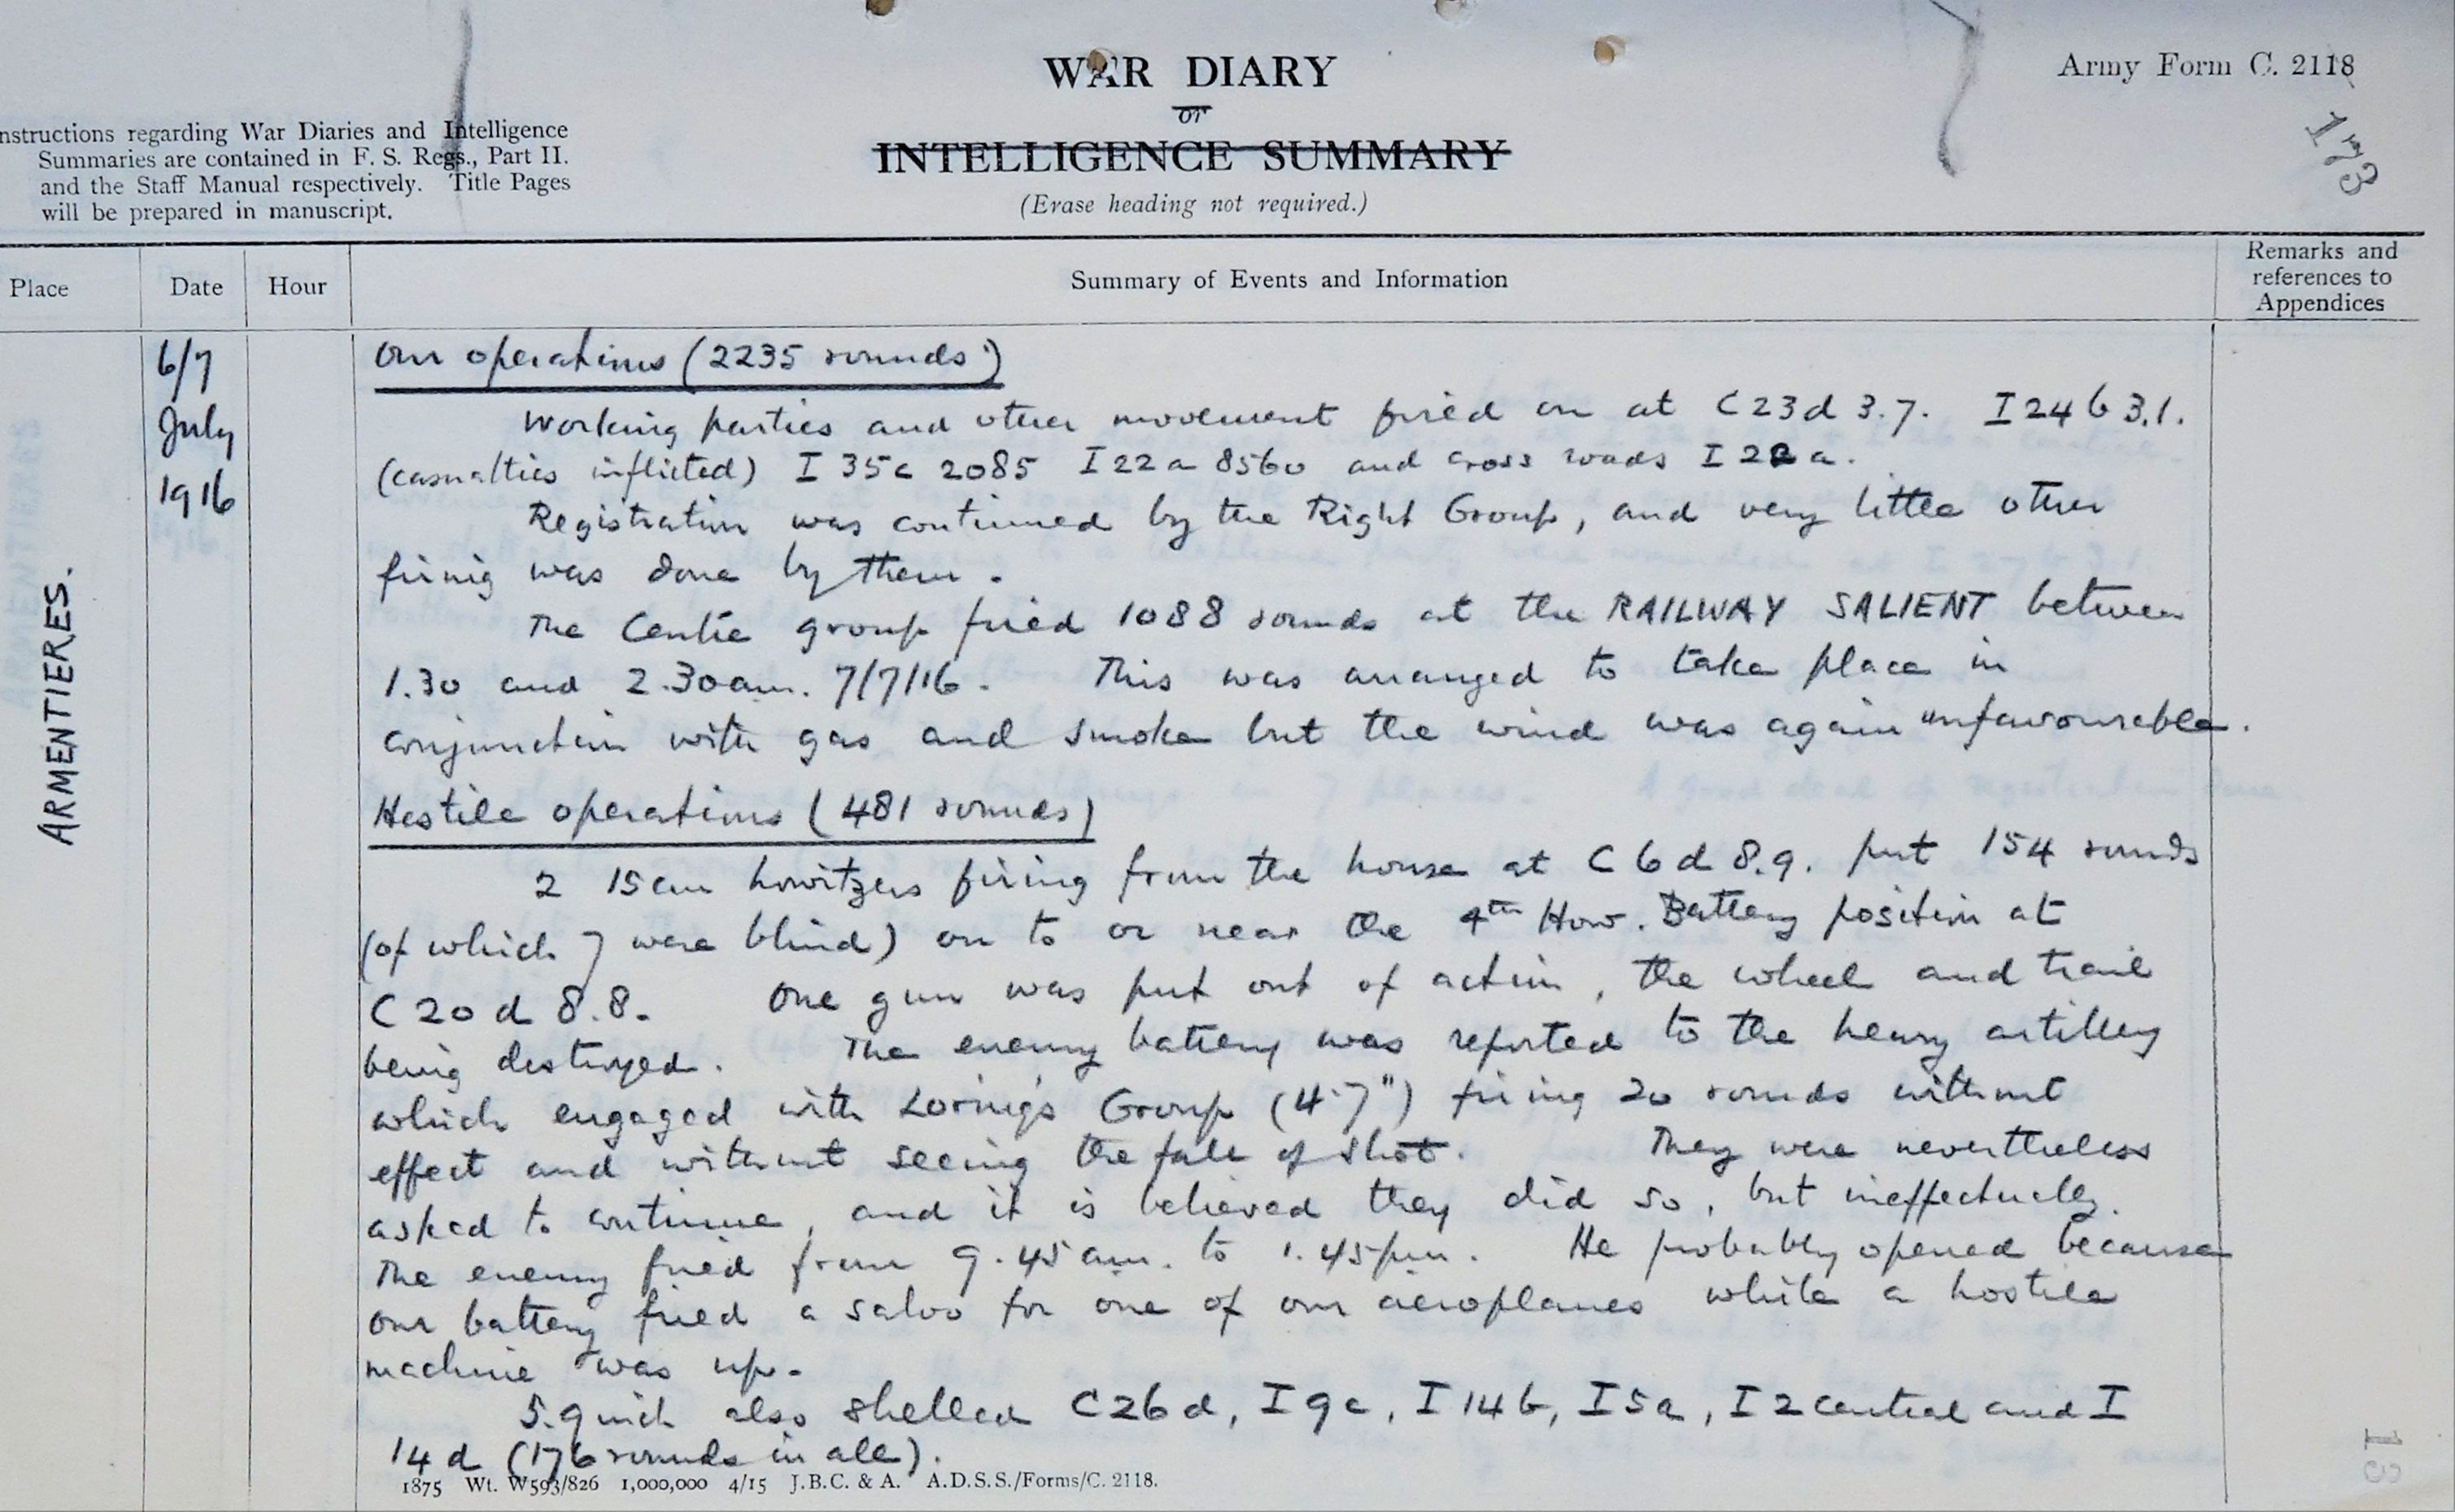 WAR DIARY
or
INTELLIGENCE SUMMARY
(Erase heading not required.)
Army Form C. 2118
173
nstructions regarding War Diaries and Intelligence
Summaries are contained in F. S. Regs., Part II.
and the Staff Manual respectively. Title Pages
will be prepared in manuscript.
Place
Date
Hour
Summary of Events and Information
Remarks and
references to
Appendices
ARMENTIERES.
6/7
July
1916
Our operations (2235 rounds)
Working parties and other movement fired on at C23d 3.7. I24b 3.1.
(casualties inflicted) I 35c 2085 I22a 8560 and cross roads I 22a.
Registration was continued by the Right Group, and very little other
firing was done by them.
The Centre group fired 1088 rounds at the RAILWAY SALIENT between
1.30 and 2.30am. 7/7/16. This was arranged to take place in
conjunction with gas and smoke but the wind was again unfavourable.
Hostile operations (481 rounds)
2 15cm howitzers firing from the house at C6d 8.9. put 154 rounds
(of which 7 were blind) on to or near the 4th How. Battery position at
C20d 8.8. One gun was put out of action, the wheel and trail
being destroyed. The enemy battery was reported to the heavy artillery
which engaged with Loring's Group (4.7") firing 20 rounds without
effect and without seeing the fall of shot. They were nevertheless
asked to continue, and it is believed they did so, but ineffectually.
The enemy fired from 9.45am. to 1.45pm. He probably opened because
our battery fired a salvo for one of our aeroplanes while a hostile
machine was up.
5.9 inch also shelled C26d, I9c, I14b, I5a, I2central and I
14d (176 rounds in all).
1875 Wt. W593/826 1,000,000 4/15 J.B.C. & A. A.D.S.S./Forms/C. 2118.